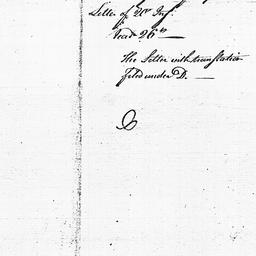 Letter of 20th Inst.
Read 26th
The Letter with translation
filed under D. —